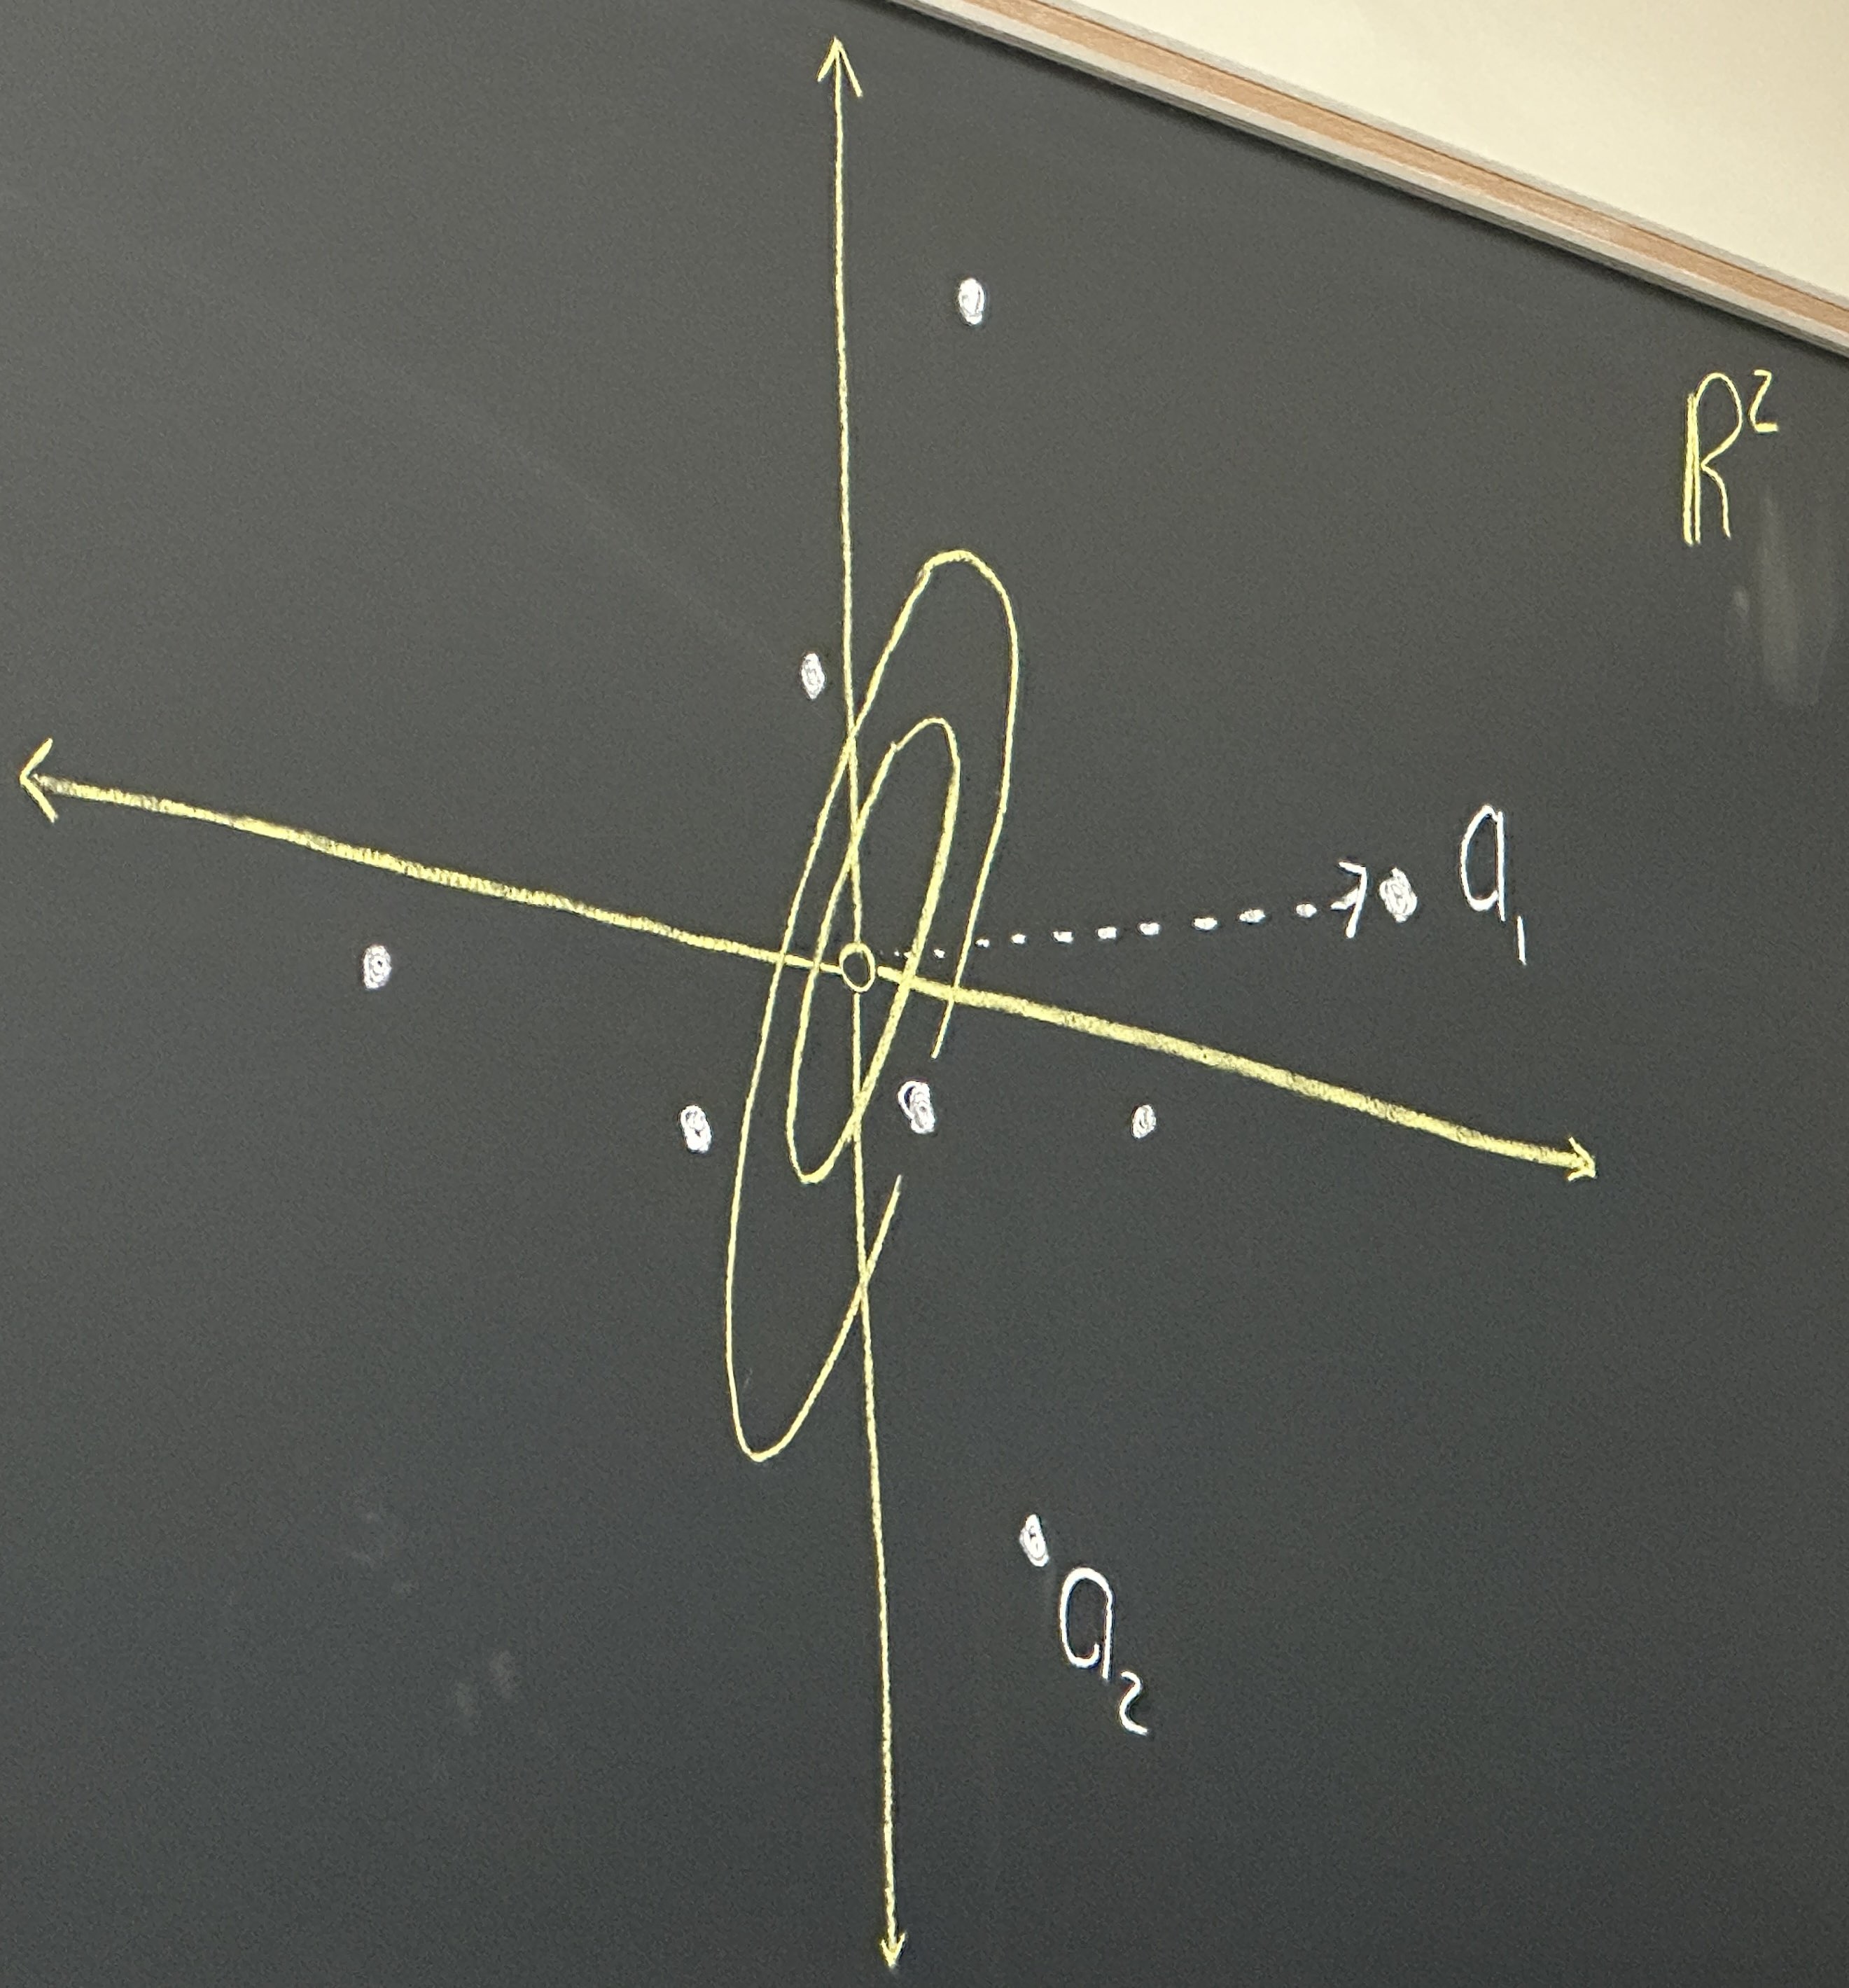 R²
a₁
a₂